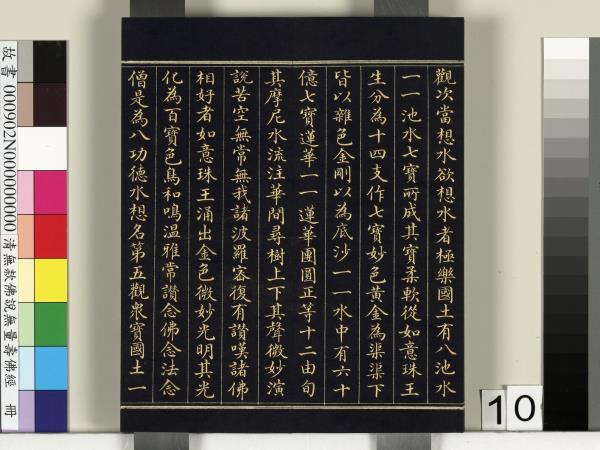 觀次當想水欲想水者極樂國土有八池水
一一池水七寶所成其寶柔軟從如意珠王
生分為十四支作七寶妙色黃金為渠渠下
皆以雜色金剛以為底沙一一水中有六十
億七寶蓮華一一蓮華團圓正等十二由旬
其摩尼水流注華間尋樹上下其聲微妙演
說苦空無常無我諸波羅密復有讚嘆諸佛
相好者如意珠王涌出金色微妙光明其光
化為百寶色鳥和鳴溫雅常讚念佛念法念
僧是為八功德水想名第五觀眾寶國土一
故書 000902N000000000 清無款佛說無量壽佛經 冊
10